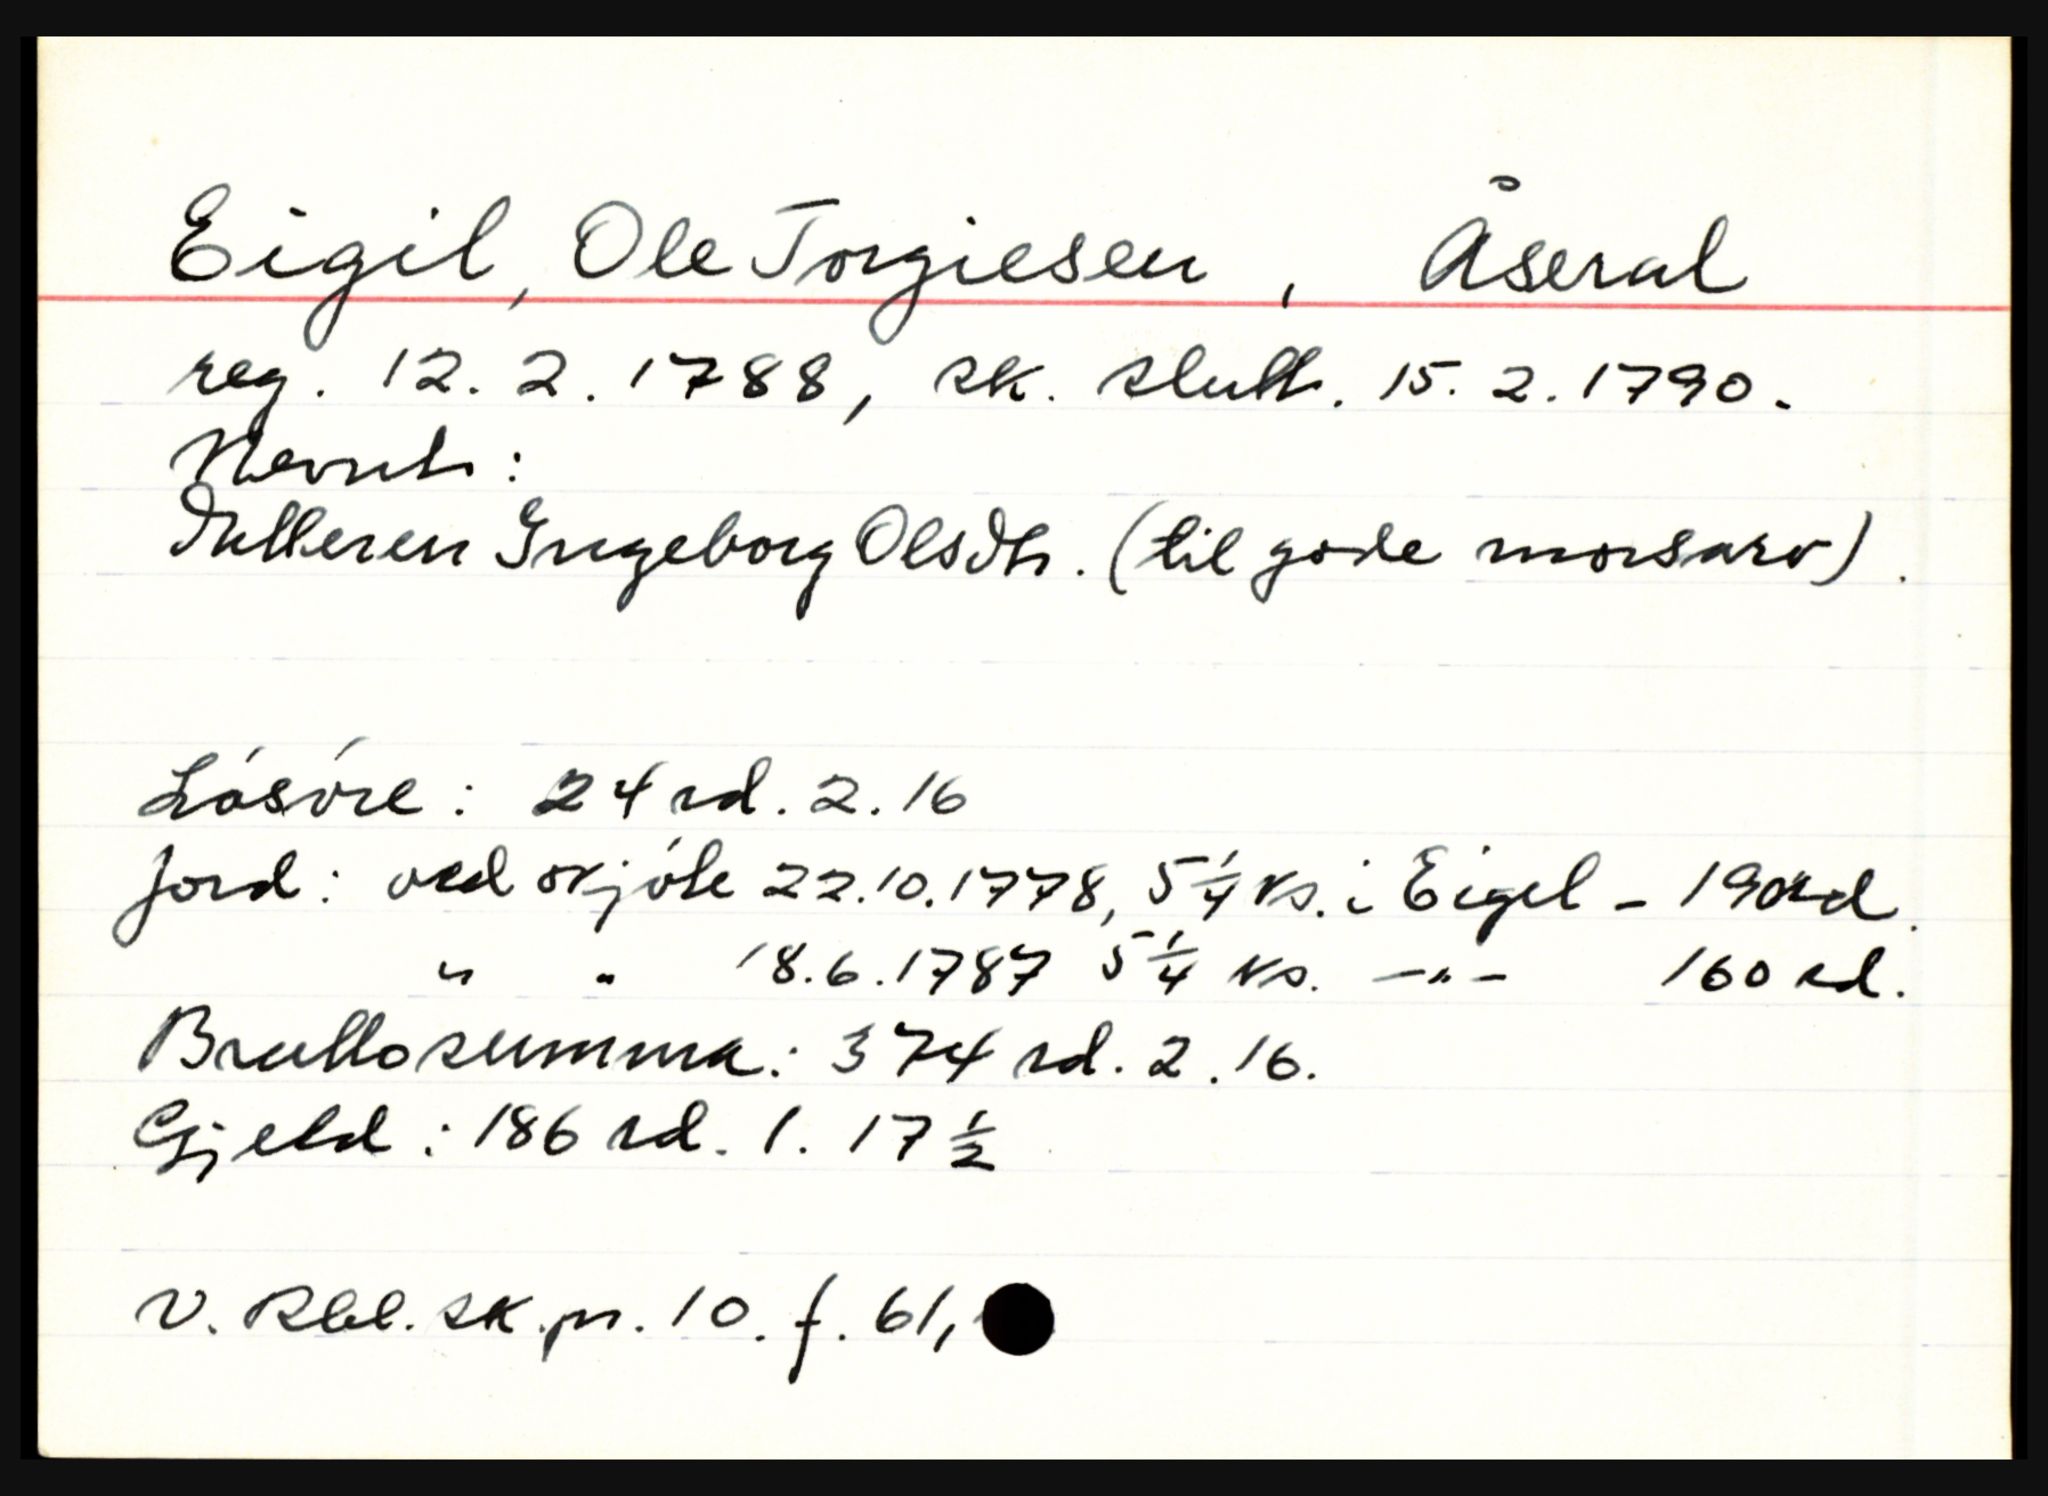 Eigil, Ole Torgiesen, Åseral
reg. 12.2.1788, sk. slutt. 15.2.1790.
Nevnt:
Datteren Ingeborg Olsdtr. (til gode morsarv).
Lósóre: 24 rd. 2. 16
Jord: ved skjóte 22.10.1778, 5 1/4 ks. i Eigel - 190 rd.
" " 18.6.1787 5 1/4 ks. -"- 160 rd.
Bruttosumma: 374 rd. 2. 16.
Gjeld: 186 rd. 1. 17 1/2
V. Rbl. sk.pr. 10. f. 61,